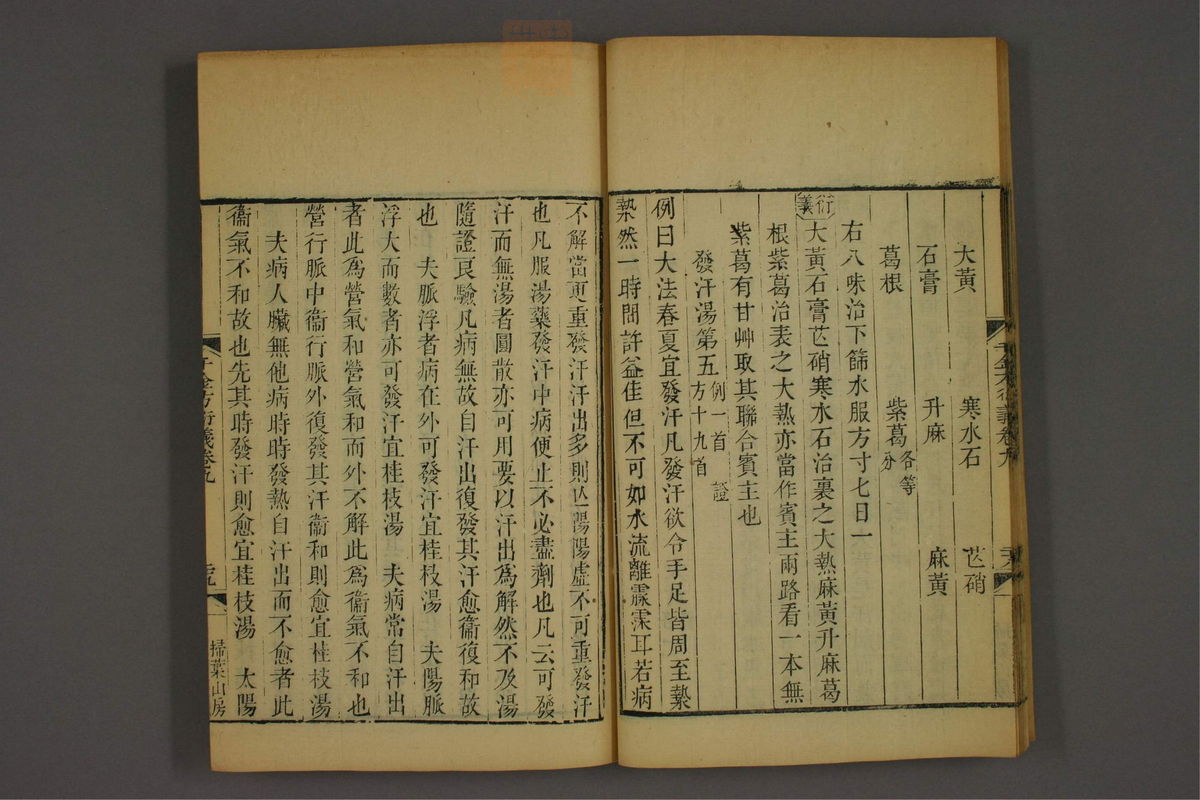 大黃 寒水石 芒硝
石膏 升麻 麻黃
葛根 紫葛各等分
右八味治下篩水服方寸七日一
衍義 大黃石膏芒硝寒水石治裏之大熱麻黃升麻葛
根紫葛治表之大熱亦當作賓主兩路看一本無
紫葛有甘艸取其聯合賓主也
發汗湯第五 例一首 證 方十九首
例曰大法春夏宜發汗凡發汗欲令手足皆周至漐
漐然一時間許益佳但不可如水流離霡霂耳若病
千金方衍義卷九
不解當更重發汗汗出多則亾陽陽虛不可重發汗
也凡服湯藥發汗中病便止不必盡劑也凡云可發
汗而無湯者圓散亦可用要以汗出爲解然不及湯
隨證良驗凡病無故自汗出復發其汗愈衞復和故
也 夫脈浮者病在外可發汗宜桂枝湯 夫陽脈
浮大而數者亦可發汗宜桂枝湯 夫病常自汗出
者此爲營氣和營氣和而外不解此爲衞氣不和也
營行脈中衞行脈外復發其汗衞和則愈宜桂枝湯
夫病人臟無他病時時發熱自汗出而不愈者此
衞氣不和故也先其時發汗則愈宜桂枝湯 太陽
千金方衍義卷九
掃葉山房